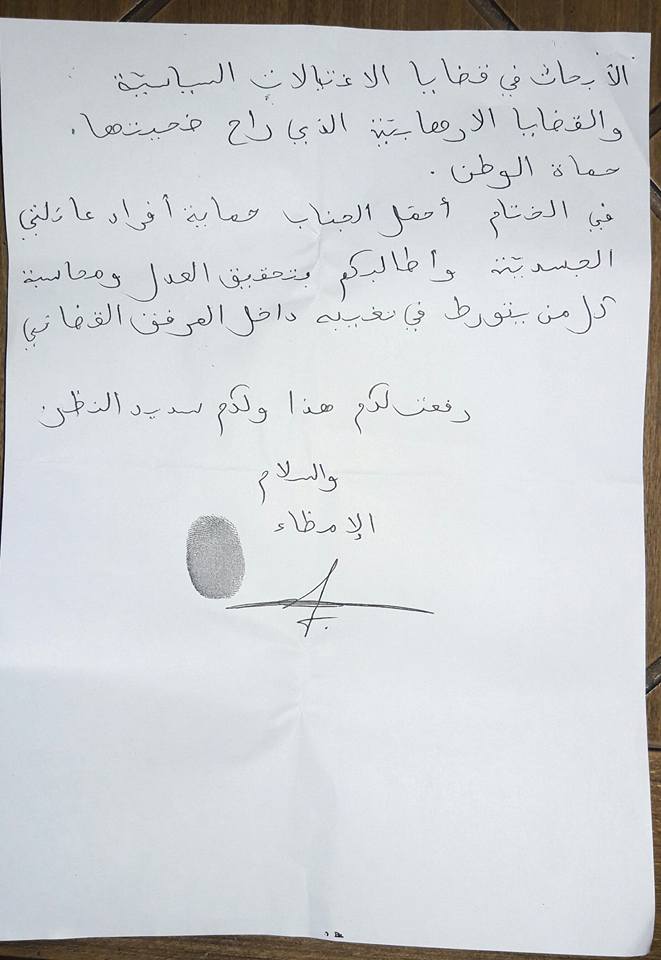 الأبحاث في قضايا الاغتيالات السياسيّة
والقضايا الارهابيّة الذي راح ضحيتها.
حماة الوطن.
في الختام أحمّل الجناب حماية أفراد عائلتي
الجسديّة وأطالبكم بتحقيق العدل ومحاسبة
كل من يتورط في تغييبه داخل المرفق القضائي
رفعت لكم هذا ولكم سديد النظر
والسلام
الإمظاء